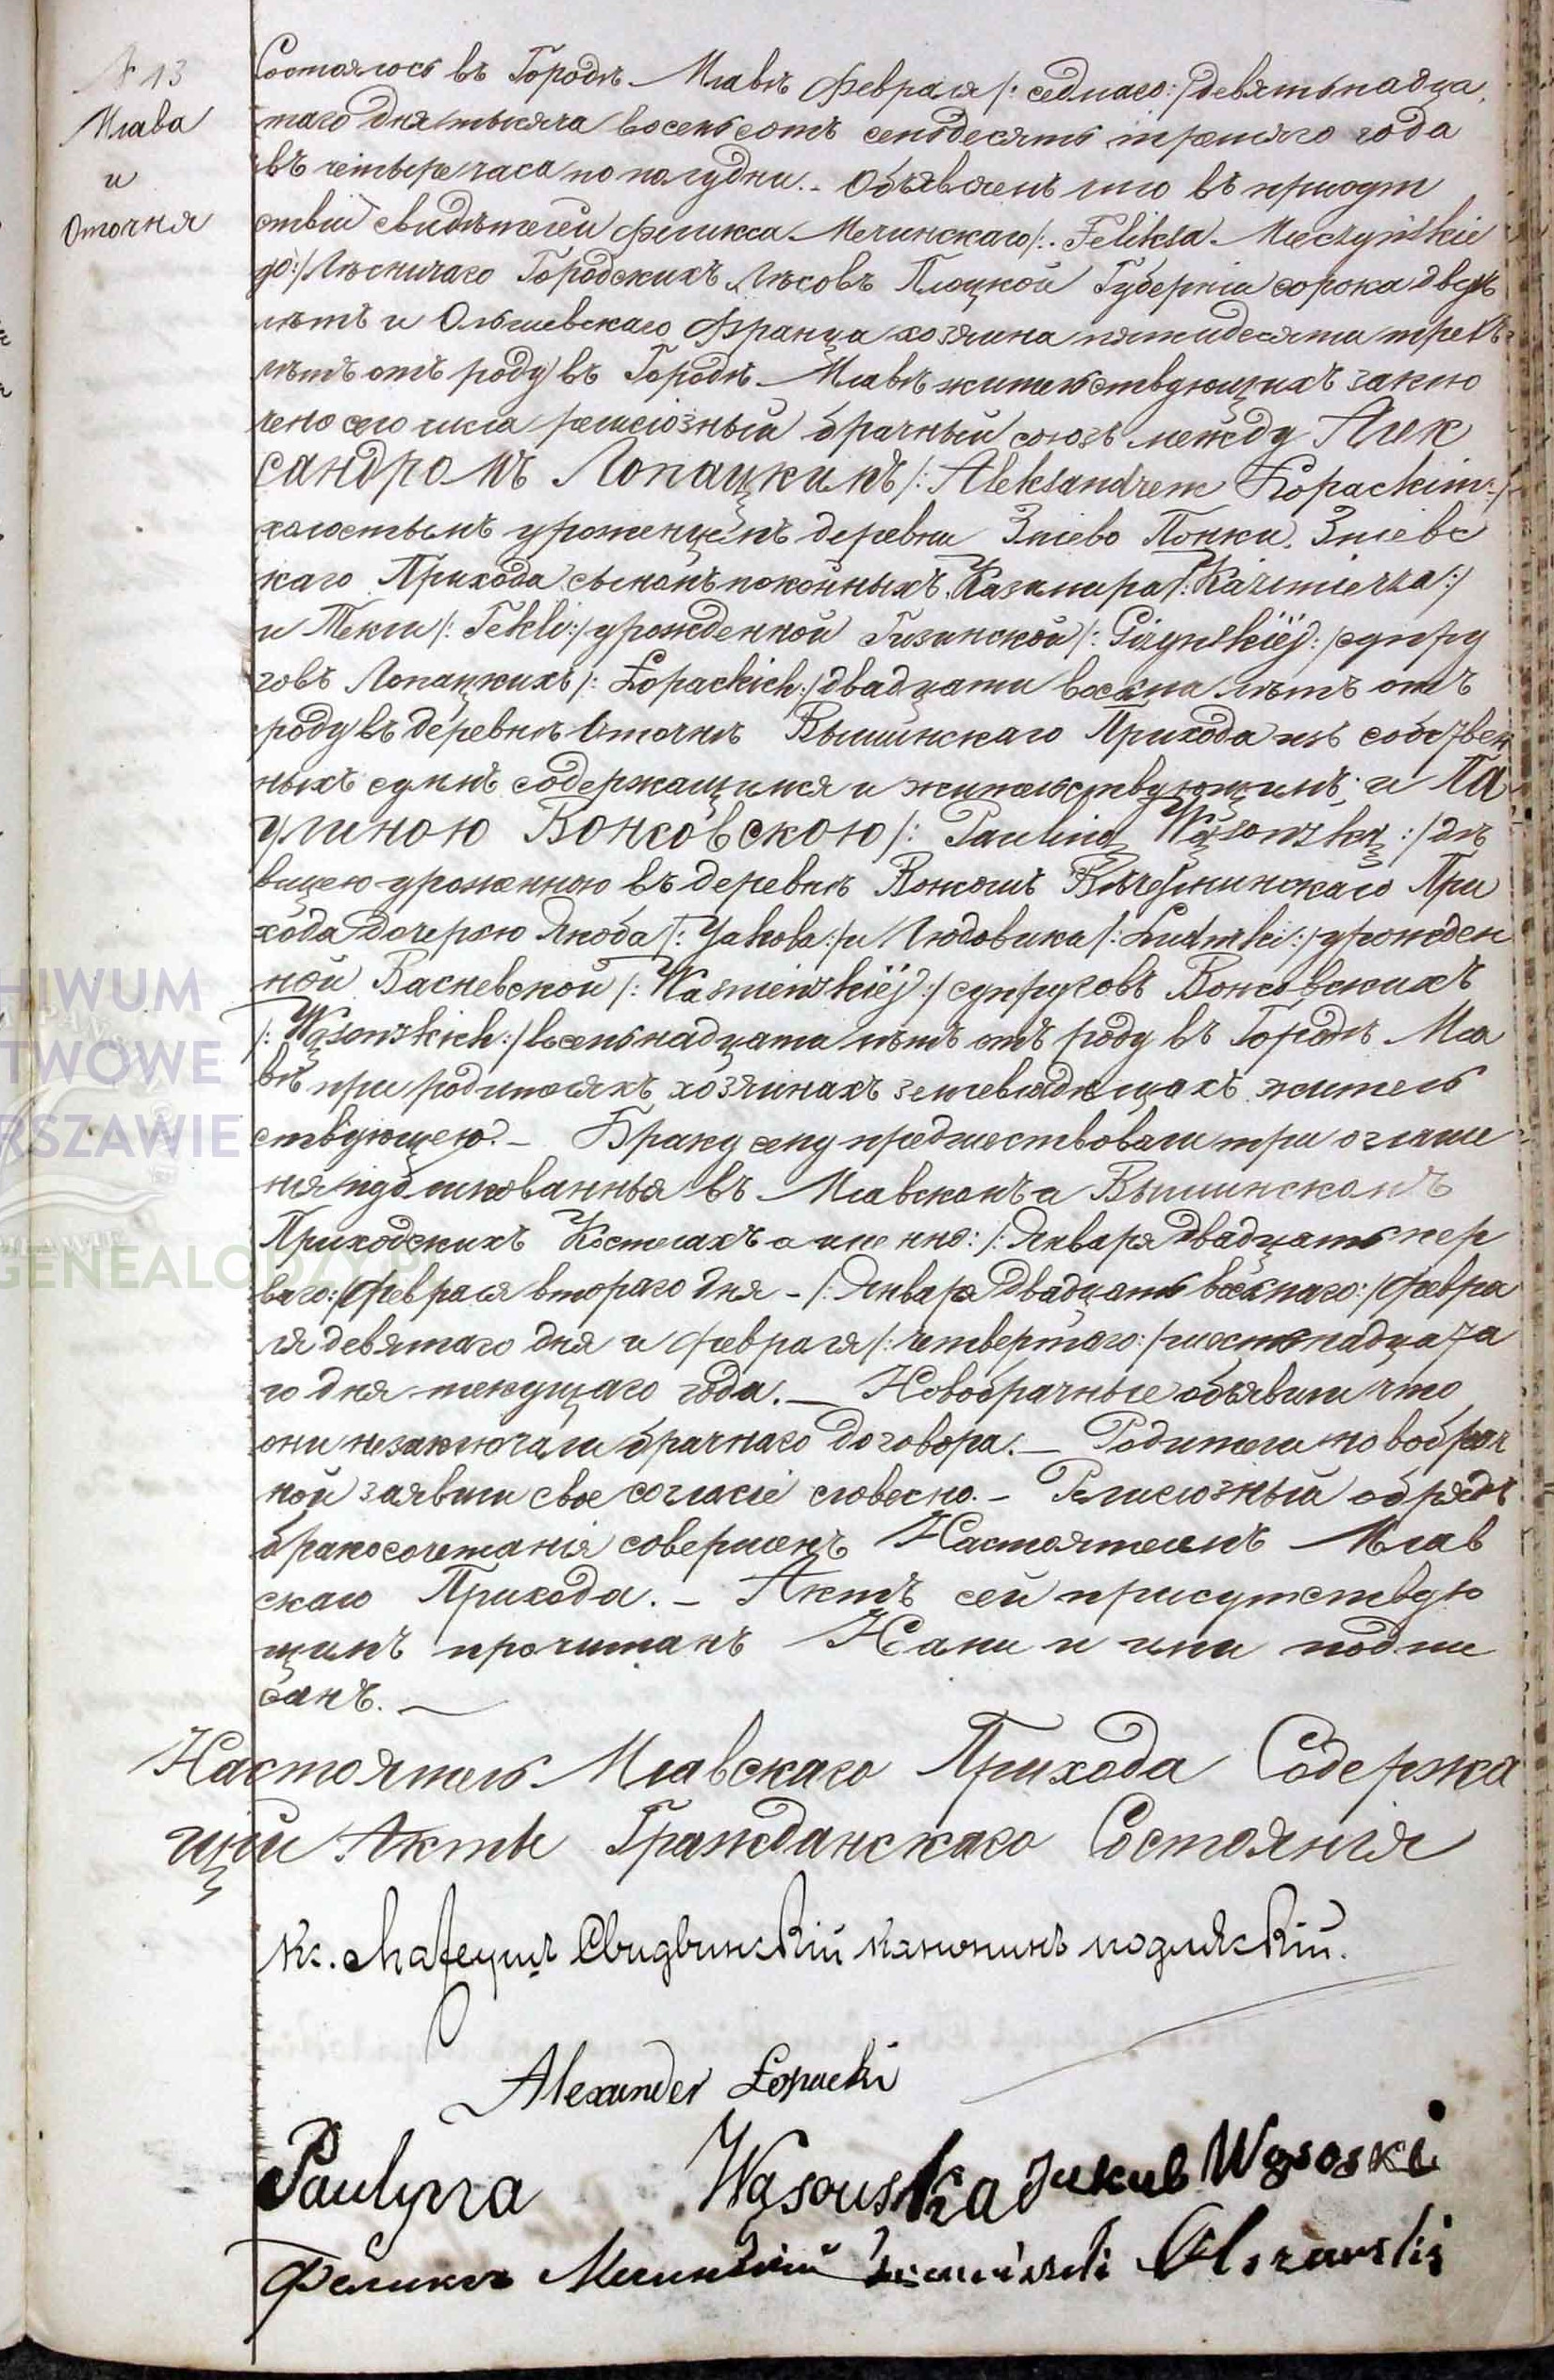 № 13
Млава
и
Оточня
Состоялось въ Городѣ Млавѣ Февраля /: седмаго :/ девятьнадца
таго дня тысяча восемьсотъ семьдесятъ третяго года
въ четыре часа по полудни. – Объявляемъ что въ присут
ствіи свидѣтелей Феликса Мечинскаго /: Feliksa Męczyńskie
go :/ Лѣсничаго Городскихъ Лѣсовъ Плоцкой Губерніи сорока двухъ
лѣтъ и Ольшевскаго Франца хозяина пятидесяти трехъ
лѣтъ отъ роду въ Городѣ Млавѣ жительствующихъ заклю
чено сего числа религіозный брачный союзъ между Алек
сандромъ Лопацкимъ /: Aleksandrem Łopackim :/
холостымъ уроженцемъ деревни Згліево Понки, Згліевс
каго Прихода сыномъ покойныхъ Казимира /: Kazimierza :/
и Текли /: Tekli :/ урожденной Гизинской /: Giżyńskiéj :/ супру
говъ Лопацкихъ /: Łopackich :/ двадцати восьми лѣтъ отъ
роду въ деревнѣ Оточнѣ Вышинскаго Прихода изъ собствен
ныхъ сумъ содержащимся и жительствующимъ; и Па
улиною Вонсовскою /: Pauliną Wąsowską :/ дѣ
вицею уроженною въ деревнѣ Вонсошѣ Прих
хода дочерью Якоба /: Jakoba :/ и Людовики /: Ludwiki :/ урожден
ной Васневской /: Waśniewskiéj :/ супруговъ Вонсовскихъ
/: Wąsowskich :/ восемьнадцати лѣтъ отъ роду въ Городѣ Мла
вѣ при родителяхъ хозяинахъ землевладѣльцахъ житель
ствующею. – Браку сему предшествовали три оглаше
нія публикованныя въ Млавскомъ и Вышинскомъ
Приходскихъ Костелахъ а именно: /: Января двадцать пер
ваго :/ Февраля втораго дня – /: Января двадцать восьмаго :/ Февра
ля девятаго дня и Февраля /: четвертаго :/ шестнадцата
го дня текущаго года. – Новобрачные объявили что
они незаключали брачнаго договора. – Родители новобрач
ной заявили свое согласіе словесно. – Религіозный обрядъ
бракосочетанія совершенъ Настоятелемъ Млав
скаго Прихода. – Актъ сей присутствую
щимъ прочитанъ Нами и ими подпи
санъ. –
Настоятель Млавскаго Прихода Содержа
щій Акты Гражданскаго Состоянія
Кс. Матеушъ Свидвинскій каноникъ подляскій.
Alexander Łopacki
Paulyna Wąsouska Jukub Wąsoski
Феликсъ Мечинскій Olszewski